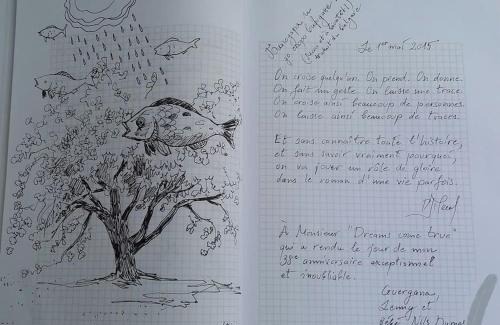 Le 1er mai 2015
On croise quelqu'un. On prend. On donne.
On fait un geste. On laisse une trace.
On croise ainsi beaucoup de personnes.
On laisse ainsi beaucoup de traces.
Et sans connaître toute l'histoire,
et sans savoir vraiment pourquoi,
on va jouer un rôle de gloire
dans le roman d'une vie parfois.
À Monsieur "Dreams come true"
qui a rendu le jour de mon
38e anniversaire exceptionnel
et inoubliable.
Guergana,
Jenny et
Nils